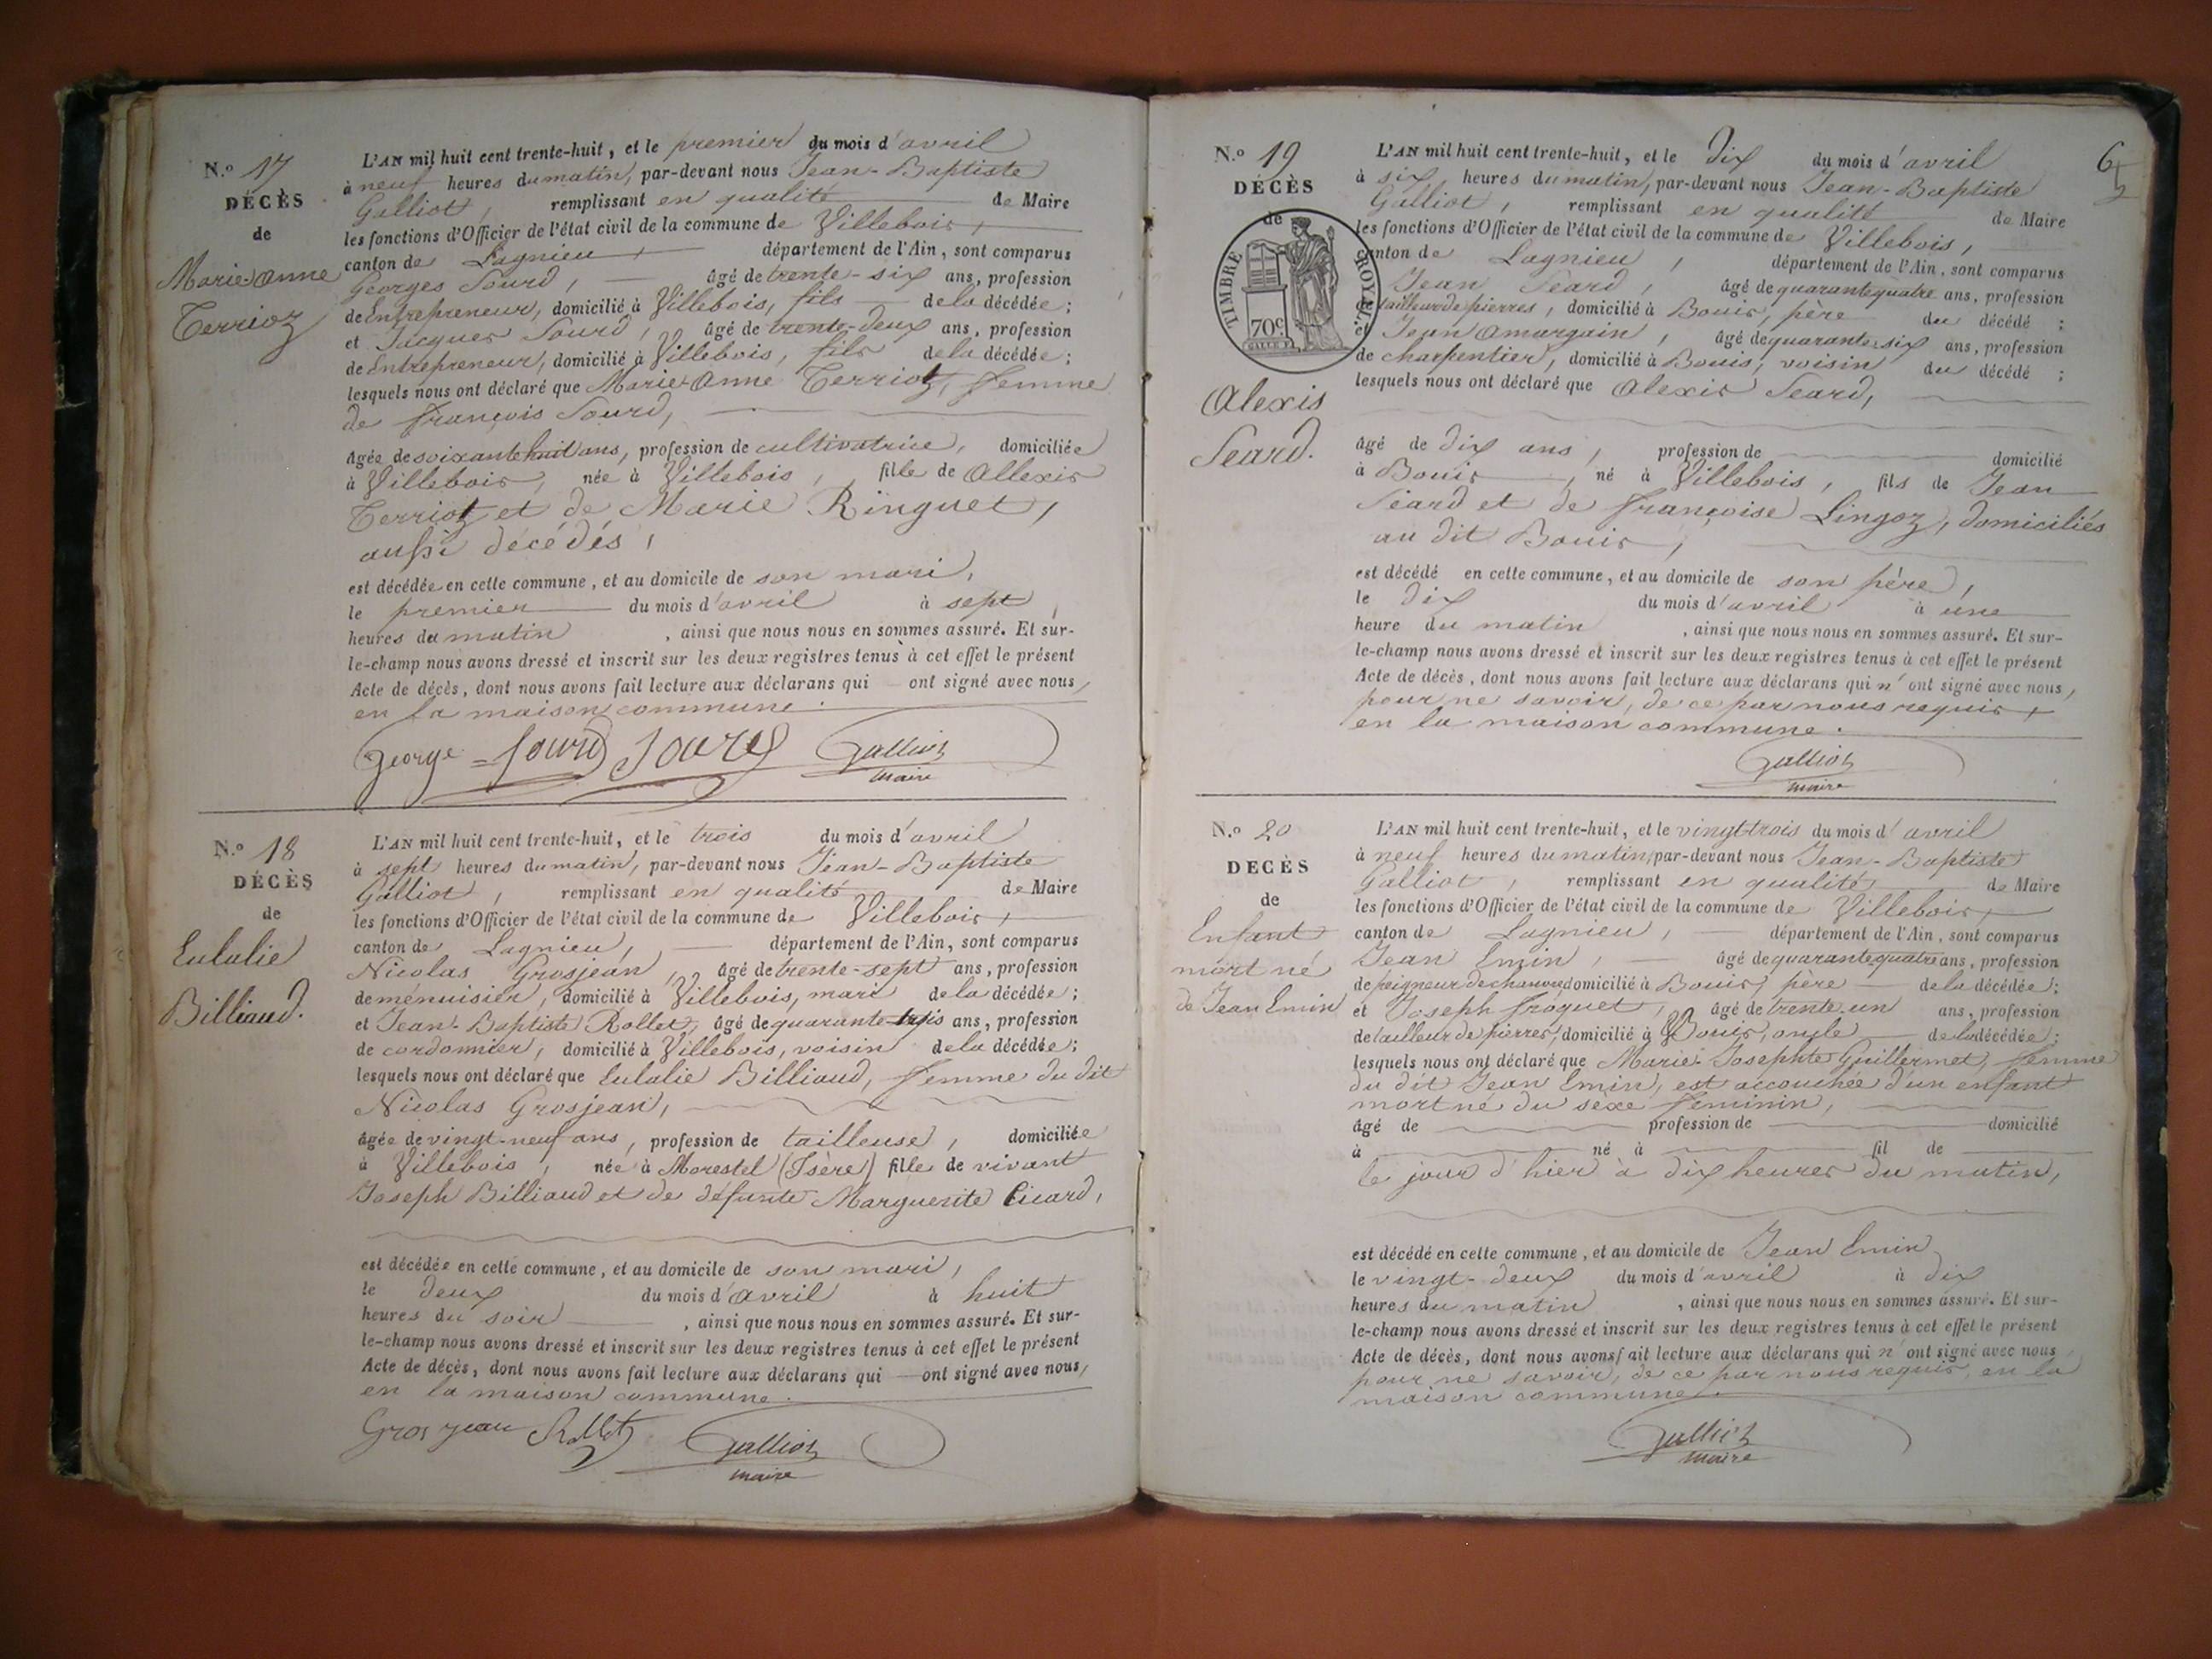 N.o 17
DÉCÈS
de
Marie-Anne
Terrioz
L'AN mil huit cent trente-huit, et le premier du mois d'avril
à neuf heures du matin, par-devant nous Jean-Baptiste
Galliot, remplissant en qualité de Maire
les fonctions d'Officier de l'état civil de la commune de Villebois,
canton de Lagnieu, département de l'Ain, sont comparus
Georges Sourd, âgé de trente-six ans, profession
de Entrepreneur, domicilié à Villebois, fils de la décédée;
et Jacques Sourd, âgé de trente-deux ans, profession
de Entrepreneur, domicilié à Villebois, fils de la décédée;
lesquels nous ont déclaré que Marie-Anne Terrioz, femme
de François Sourd,
âgée de soixante huit ans, profession de cultivatrice, domiciliée
à Villebois, née à Villebois, fille de Allexis
Terrioz et de Marie Ringuet,
aussi décédés,
est décédée en cette commune, et au domicile de son mari,
le premier du mois d'avril à sept
heures du matin, ainsi que nous nous en sommes assuré. Et sur-
le-champ nous avons dressé et inscrit sur les deux registres tenus à cet effet le présent
Acte de décès, dont nous avons fait lecture aux déclarans qui ont signé avec nous,
en la maison commune.
George Sourd Sourd Galliot
maire
N.o 18
DÉCÈS
de
Eulalie
Billiaud.
L'AN mil huit cent trente-huit, et le trois du mois d'avril
à sept heures du matin, par-devant nous Jean-Baptiste
Galliot, remplissant en qualité de Maire
les fonctions d'Officier de l'état civil de la commune de Villebois,
canton de Lagnieu, département de l'Ain, sont comparus
Nicolas Grosjean, âgé de trente-sept ans, profession
de menuisier, domicilié à Villebois, mari de la décédée;
et Jean-Baptiste Rollet, âgé de quarante-trois ans, profession
de cordonnier, domicilié à Villebois, voisin de la décédée;
lesquels nous ont déclaré que Eulalie Billiaud, femme du dit
Nicolas Grosjean,
âgée de vingt-neuf ans, profession de tailleuse, domiciliée
à Villebois, née à Morestel (Isère) fille de vivant
Joseph Billiaud et de défunte Marguerite Cicard,
est décédée en cette commune, et au domicile de son mari,
le deux du mois d'avril à huit
heures du soir, ainsi que nous nous en sommes assuré. Et sur-
le-champ nous avons dressé et inscrit sur les deux registres tenus à cet effet le présent
Acte de décès, dont nous avons fait lecture aux déclarans qui ont signé avec nous,
en la maison commune.
Grosjean Rollet Galliot
maire
6
N.o 19
DÉCÈS
de
TIMBRE ROYAL
70c
Alexis
Seard.
L'AN mil huit cent trente-huit, et le dix du mois d'avril
à six heures du matin, par-devant nous Jean-Baptiste
Galliot, remplissant en qualité de Maire
les fonctions d'Officier de l'état civil de la commune de Villebois,
canton de Lagnieu, département de l'Ain, sont comparus
Jean Seard, âgé de quarante quatre ans, profession
de tailleur de pierres, domicilié à Bouis, père du décédé;
et Jean Amargain, âgé de quarante-six ans, profession
de charpentier, domicilié à Bouis, voisin du décédé;
lesquels nous ont déclaré que Alexis Seard,
âgé de dix ans, profession de domicilié
à Bouis, né à Villebois, fils de Jean
Séard et de Françoise Lingoz, domiciliés
au dit Bouis,
est décédé en cette commune, et au domicile de son père,
le dix du mois d'avril à une
heure du matin, ainsi que nous nous en sommes assuré. Et sur-
le-champ nous avons dressé et inscrit sur les deux registres tenus à cet effet le présent
Acte de décès, dont nous avons fait lecture aux déclarans qui n'ont signé avec nous,
pour ne savoir, de ce par nous requis,
en la maison commune.
Galliot
maire
N.o 20
DECÈS
de
Enfant
mort né
de Jean Emin
L'AN mil huit cent trente-huit, et le vingt-trois du mois d'avril
à neuf heures du matin, par-devant nous Jean-Baptiste
Galliot, remplissant en qualité de Maire
les fonctions d'Officier de l'état civil de la commune de Villebois,
canton de Lagnieu, département de l'Ain, sont comparus
Jean Emin, âgé de quarante quatre ans, profession
de peigneur de chanvre, domicilié à Bouis, père de la décédée;
et Joseph Froquet, âgé de trente-un ans, profession
de tailleur de pierres, domicilié à Bouis, oncle de la décédée;
lesquels nous ont déclaré que Marie-Josephte Guillermet, femme
du dit Jean Emin, est accouchée d'un enfant
mort né du sèxe feminin,
âgé de profession de domicilié
à né à fil de
le jour d'hier à dix heures du matin,
est décédé en cette commune, et au domicile de Jean Emin
le vingt-deux du mois d'avril à dix
heures du matin, ainsi que nous nous en sommes assuré. Et sur-
le-champ nous avons dressé et inscrit sur les deux registres tenus à cet effet le présent
Acte de décès, dont nous avons fait lecture aux déclarans qui n'ont signé avec nous
pour ne savoir, de ce par nous requis, en la
maison commune.
Galliot
maire